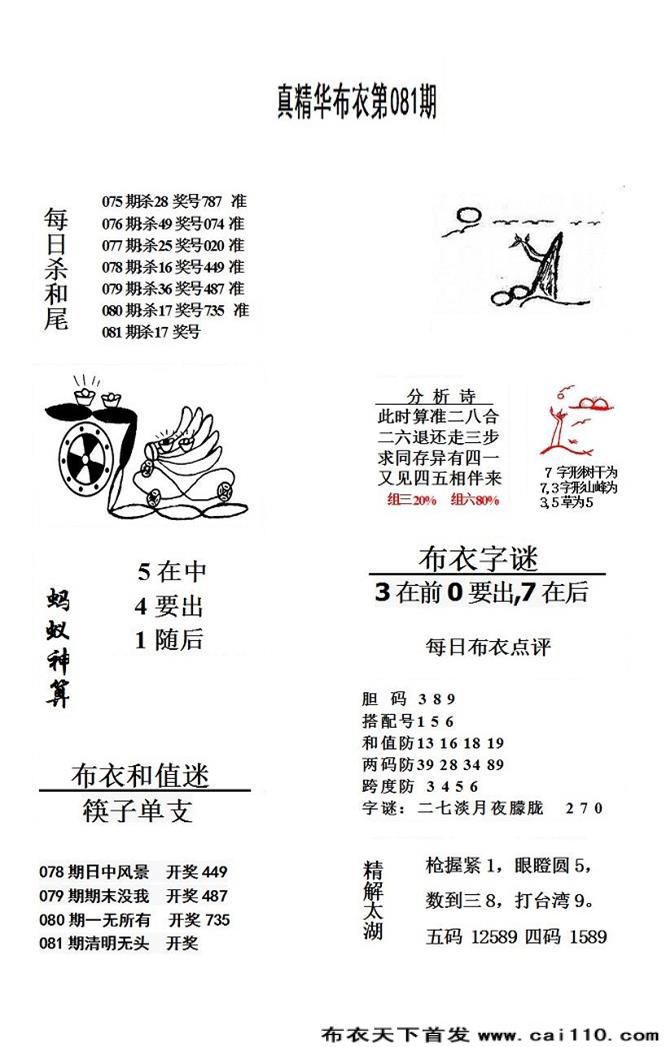 真精华布衣第081期
每日杀和尾
075期杀28 奖号787 准
076期杀49 奖号074 准
077期杀25 奖号020 准
078期杀16 奖号449 准
079期杀36 奖号487 准
080期杀17 奖号735 准
081期杀17 奖号
分析诗
此时算准二八合
二六退还走三步
求同存异有四一
又见四五相伴来
组三20% 组六80%
7字形树干为
7,3字形山峰为
3,5草为5
蚂蚁神算
5在中
4要出
1随后
布衣字谜
3在前0要出,7在后
每日布衣点评
胆 码 3 8 9
搭配号1 5 6
和值防13 16 18 19
两码防39 28 34 89
跨度防 3 4 5 6
字谜：二七淡月夜朦胧 2 7 0
布衣和值迷
筷子单支
078期日中风景 开奖449
079期期末没我 开奖487
080期一无所有 开奖735
081期清明无头 开奖
精解太湖
枪握紧1，眼瞪圆5，
数到三8，打台湾9。
五码 12589 四码 1589
布衣天下首发 www.cai110.com